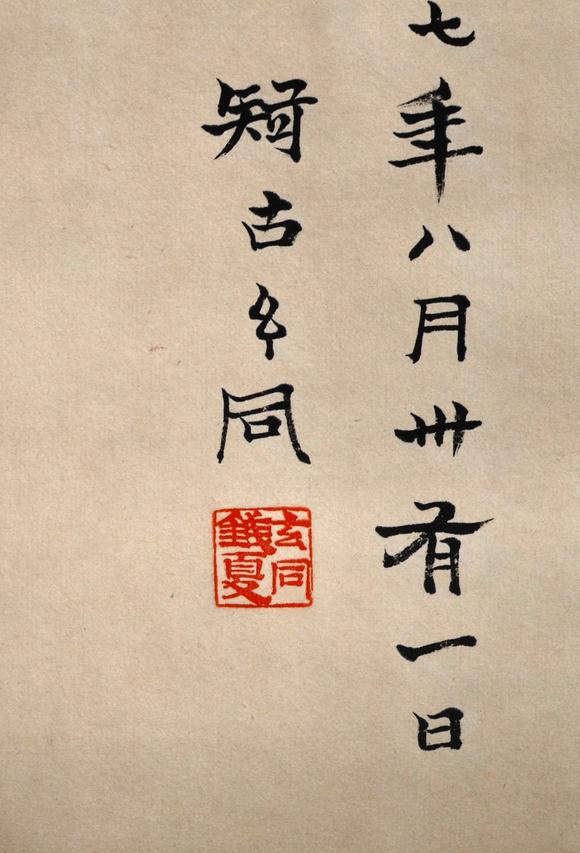 七年八月卅有一日
疑古玄同
玄同
錢夏